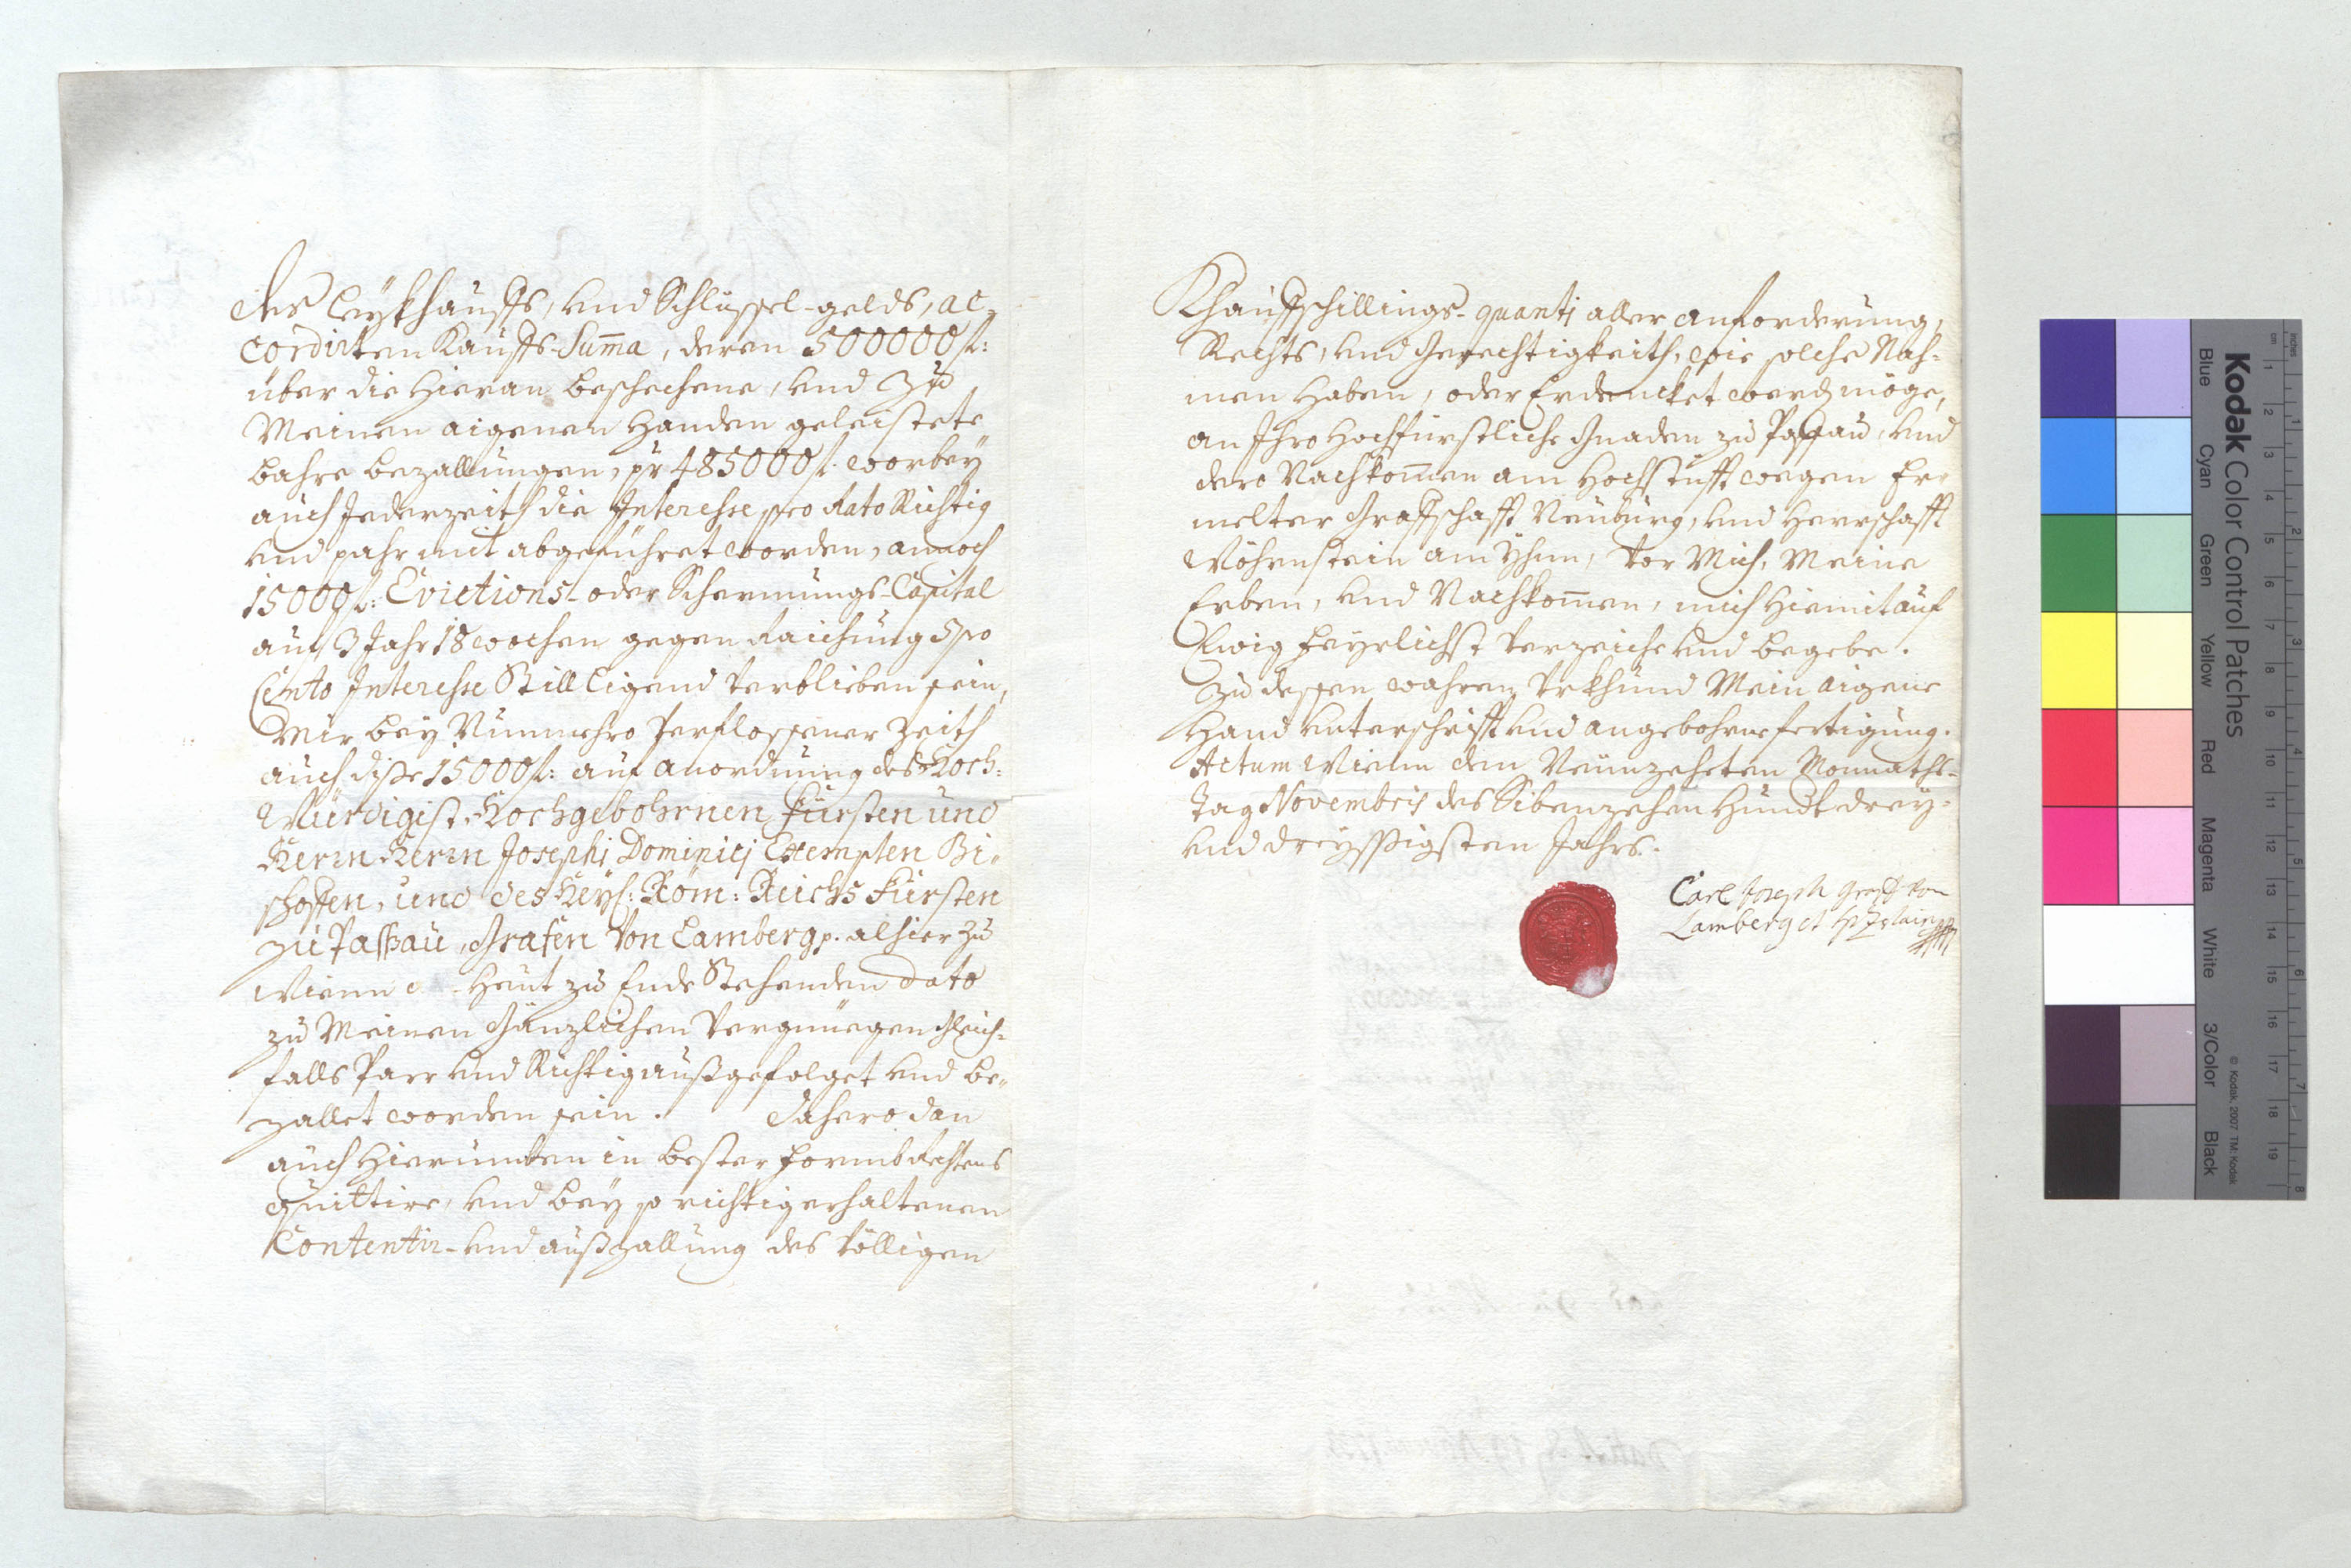 des Leykhauffs, und Schlüssel-gelds, ac-
cordirten Kauffs-Summa, deren 500000 fl:
über die hieran beschechene, und zu
Meinen aigenen Handen geleistete
bahre bezallungen, pr 485000 fl. worbey
auch Jederzeith die Interesse pro Rato Richtig
und pahr mit abgeführet worden, annoch
15000 fl: Evictions- oder Schermungs-Capital
auf 3 Jahr 18 wochen gegen Raichung 5 pro
Cento Interesse Still Ligend verblieben sein,
Mir bey Nunmehro verflossener Zeith
auch dise 15000 fl: auf anordnung des Hoch-
Würdigist-Hochgebohrnen Fürsten und
Herrn Herrn Josephi Dominici Exempten Bi-
schoffen, und des Heyl: Röm: Reichs Fürsten
zu Passau, Grafen von Lamberg p. alhier zu
Wienn Heut zu Ende Stehenden dato
zu Meinen Gänzlichen Vergnüegen Gleich-
falls Paar und Richtig außgefolget und be-
zallet worden sein. Dahero dan
auch Hierumben in bester formb Rechtens
quittire, und bey so richtig erhaltenen
Contentir- und außzallung des völligen
Khauffschillings-quanti aller anforderung,
Rechts, und Gerechtigkeith, wie solche Nah-
men Haben, oder Erdencket werden möge,
an Ihro Hochfürstliche Gnaden zu Passau, und
dero Nachkommen am Hochstüfft wegen Er-
melter Graffschafft Neuburg, und Herrschafft
Wöhrnstein am Yhnn, vor Mich, Meine
Erben, und Nachkommen, mich Hiemit auf
Ewig feyrlichst verzeiche und begebe.
Zu dessen wahren Urkhund Mein aigene
Hand unterschrifft und angebohrne fertigung.
Actum Wienn den Neunzeheten Monnaths-
Tag Novembris des Sibenzehen Hundt drey-
und dreyssigsten Jahrs.
Carl Joseph Graff von
Lamberg
Kodak Color Control Patches
Blue Cyan Green Yellow Red Magenta White 3/Color Black
© Kodak, 2007 TM: Kodak
cm 1 2 3 4 5 6 7 8 9 10 11 12 13 14 15 16 17 18 19
inches 1 2 3 4 5 6 7 8